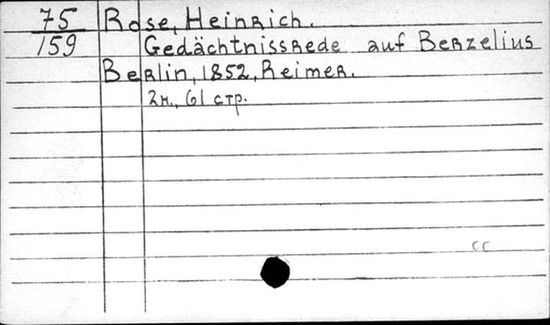 75 Rose, Heinrich.
159 Gedächtnissrede auf Berzelius
Berlin, 1852, Reimer.
2н., 61 стр.
сс